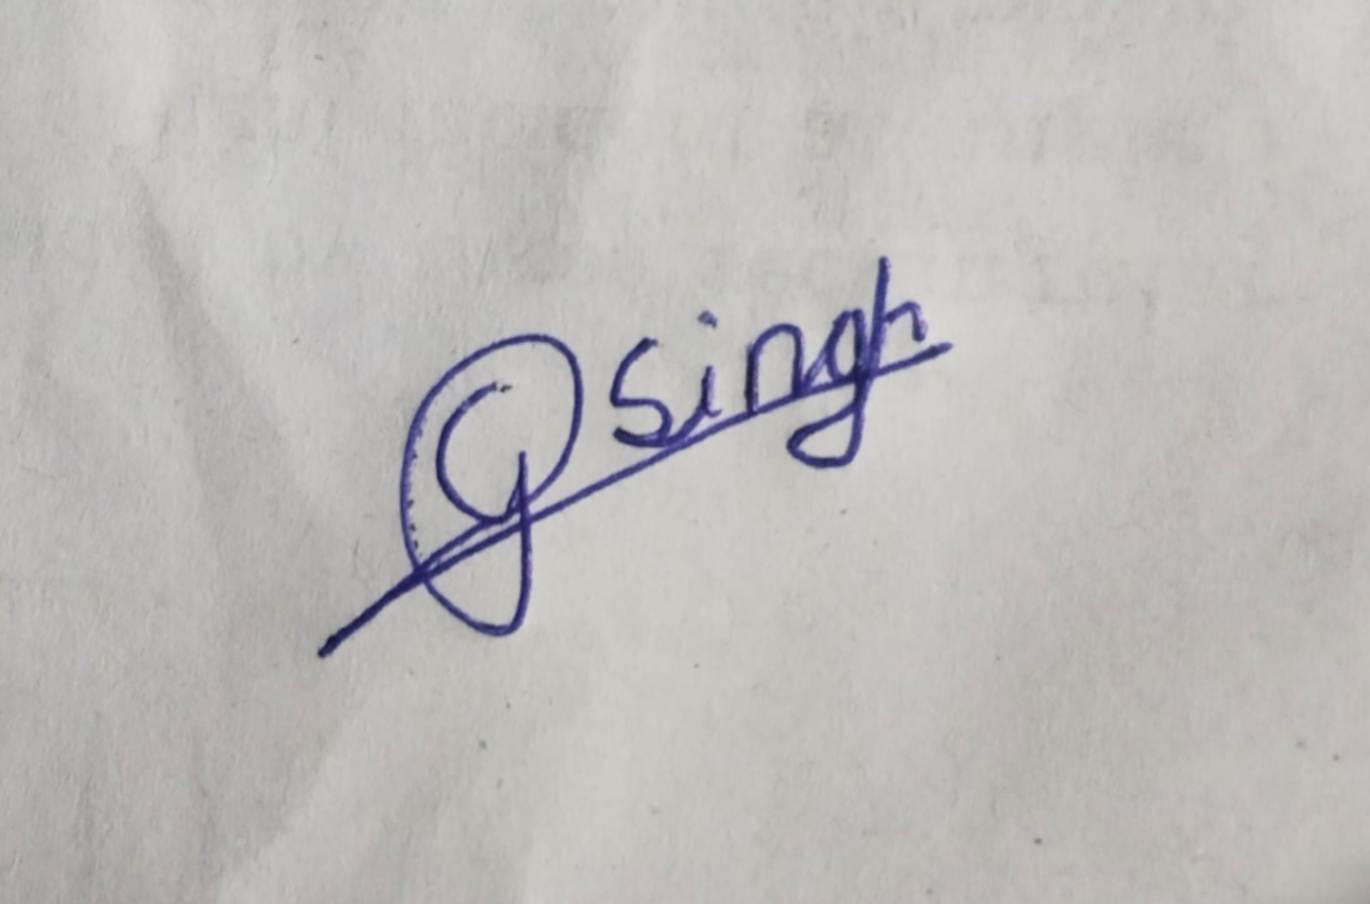 G Singh